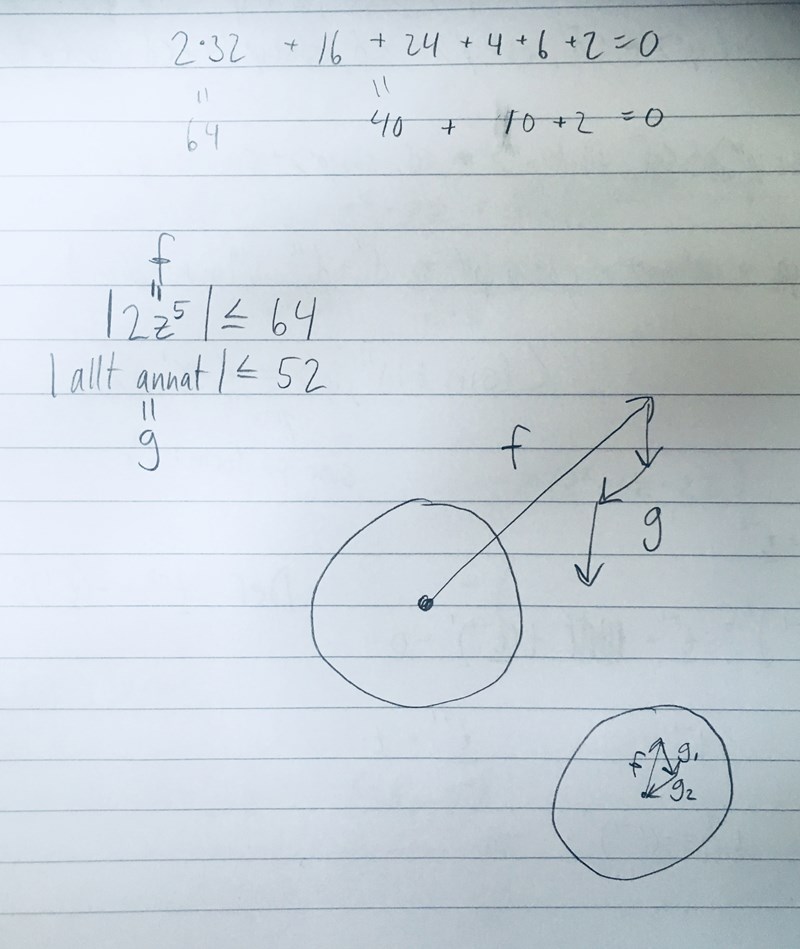 2·32 + 16 + 24 + 4 + 6 + 2 = 0
" "
64 40 + 10 + 2 = 0
f
"
|2z⁵| ≤ 64
|allt annat| ≤ 52
"
g
f
g
f g₁
g₂